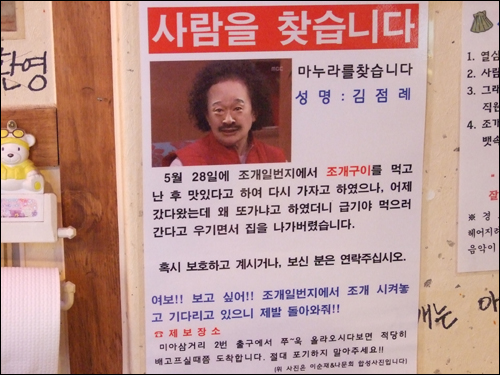 사람을 찾습니다
환영
MBC
마누라를찾습니다
성명 : 김점례
5월 28일에 조개일번지에서 조개구이를 먹고
난 후 맛있다고 하여 다시 가자고 하였으나, 어제
갔다왔는데 왜 또가냐고 하였더니 급기야 먹으러
간다고 우기면서 집을 나가버렸습니다.
혹시 보호하고 계시거나, 보신 분은 연락주십시오.
여보!! 보고 싶어!! 조개일번지에서 조개 시켜놓
고 기다리고 있으니 제발 돌아와줘!!
☎ 제보장소
미아삼거리 2번 출구에서 쭈~욱 올라오시다보면 적당히
배고프실때쯤 도착합니다. 절대 포기하지 말아주세요!!
(위 사진은 이순재&나문희 합성사진입니다)
1. 열심
2. 사람
3. 그래
직원
4. 조개
뱃속
*
잘
※ 경
헤어지려
음악이
개는 아